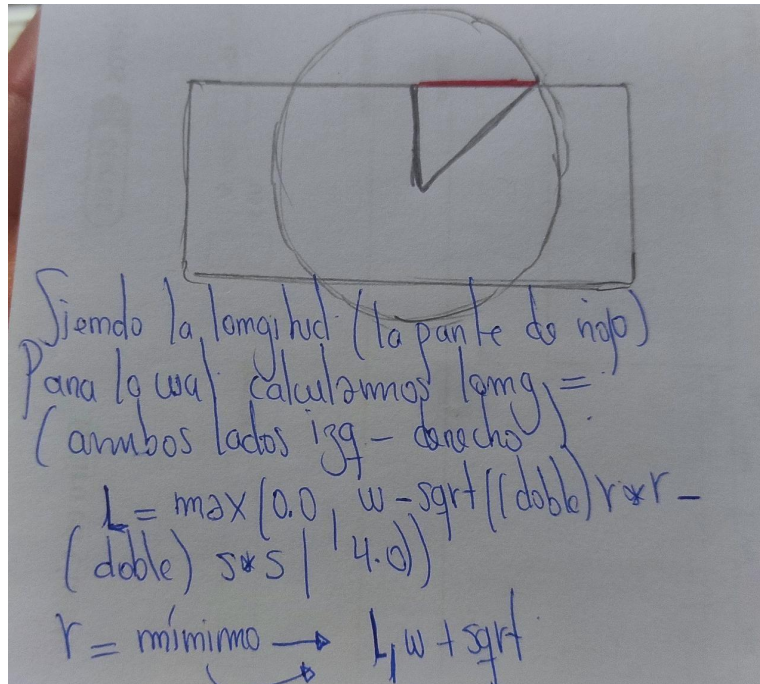 Siendo la longitud (la parte de rojo)
Para lo cual calculamos long =
(ambos lados izq - derecho)
L = max(0.0, w - sqrt((doble) r*r -
(doble) s*s / 4.0))
r = mínimo → L, w + sqrt